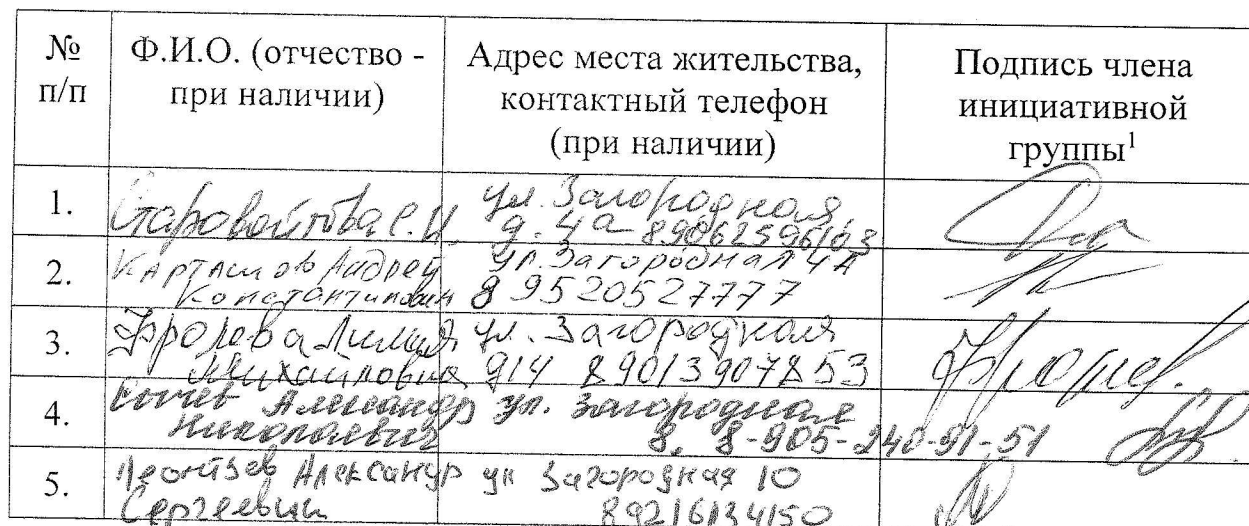 № п/п
Ф.И.О. (отчество - при наличии)
Адрес места жительства, контактный телефон (при наличии)
Подпись члена инициативной группы¹
1.
Старовойтова С.И.
ул. Загородная,
д. 4а 89062596163
2.
Андрей
Константинович
ул. Загородная 4А
8 9520527777
3.
Фролова Лидия
Михайловна
ул. Загородная
д14 89013907853
4.
Александр
Николаевич
ул. Загородная
8, 8-905-240-91-51
5.
Леонтьев Александр
Сергеевич
ул Загородная 10
89216134150